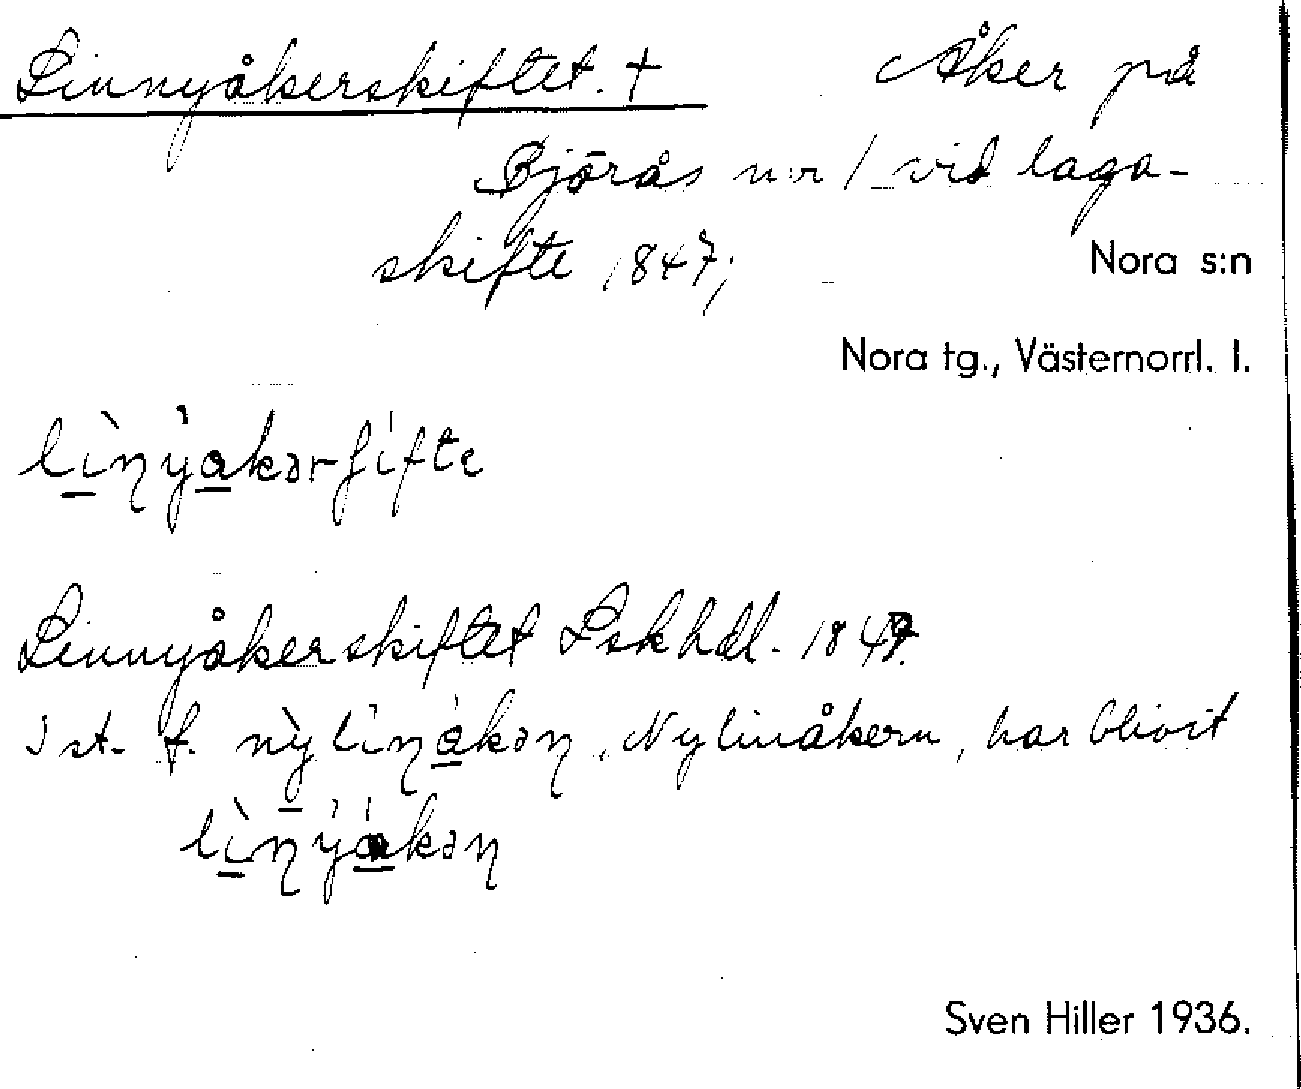 Linnyåkerskiftet. † Åker på
Björås nr 1 vid laga-
skifte 1847;
Nora s:n
Nora tg., Västernorrl. l.
lìnẏ̀akərʃifte
Linnyåkerskiftet Lskhdl. 1847.
I st. f. nỳlìnákəŋ, Nylinåkern, har blivit
lìnýákəŋ
Sven Hiller 1936.